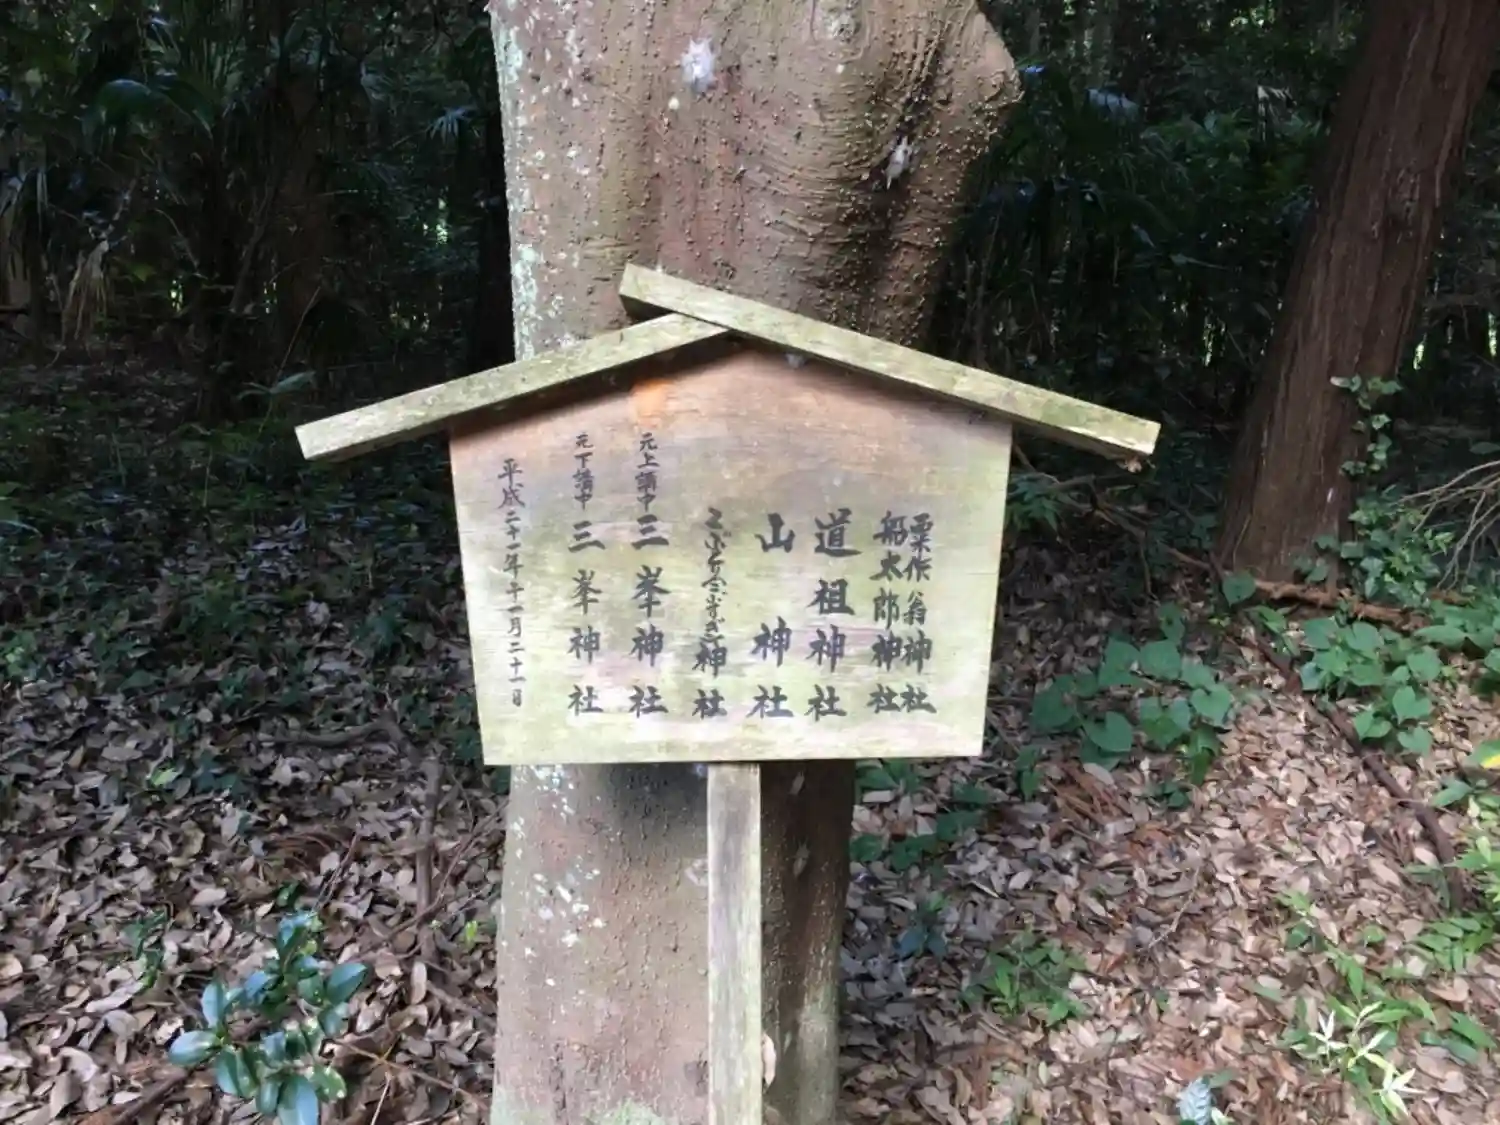 粟作翁神社
船太郎神社
道祖神社
山神社
神社
元上講中三峯神社
元下講中三峯神社
平成二十一年十一月二十一日